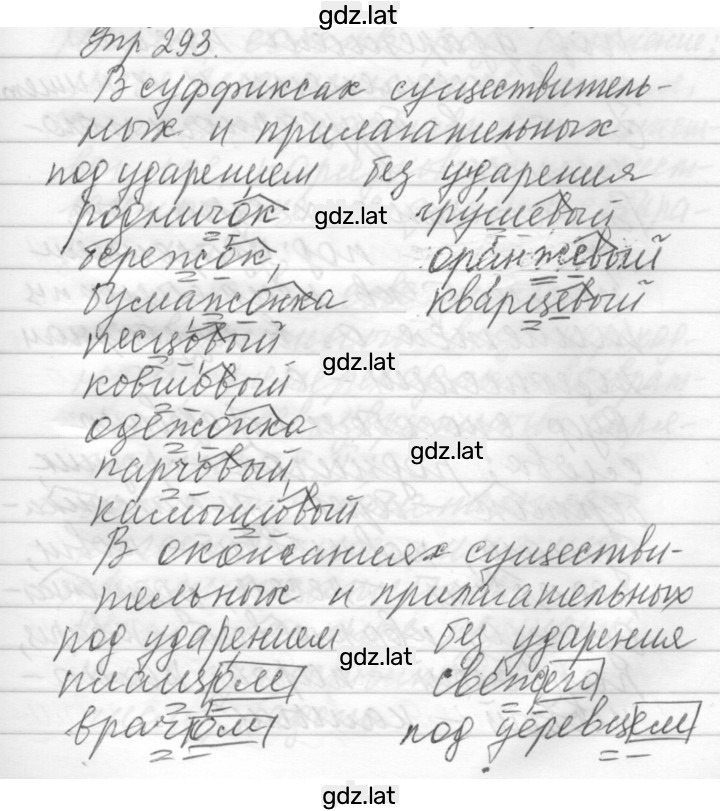 gdz.lat
Упр 293.
В суффиксах существитель-
ных и прилагательных
под ударением без ударения
родничок gdz.lat грушевый
бережок, оранжевый
бумажонка кварцевый
песцовый
gdz.lat
ковшовый
одежонка
gdz.lat
парчовый
камышовый
В окончаниях существи-
тельных и прилагательных
под ударением без ударения
gdz.lat
плащом свежего
врачом под деревцем
gdz.lat